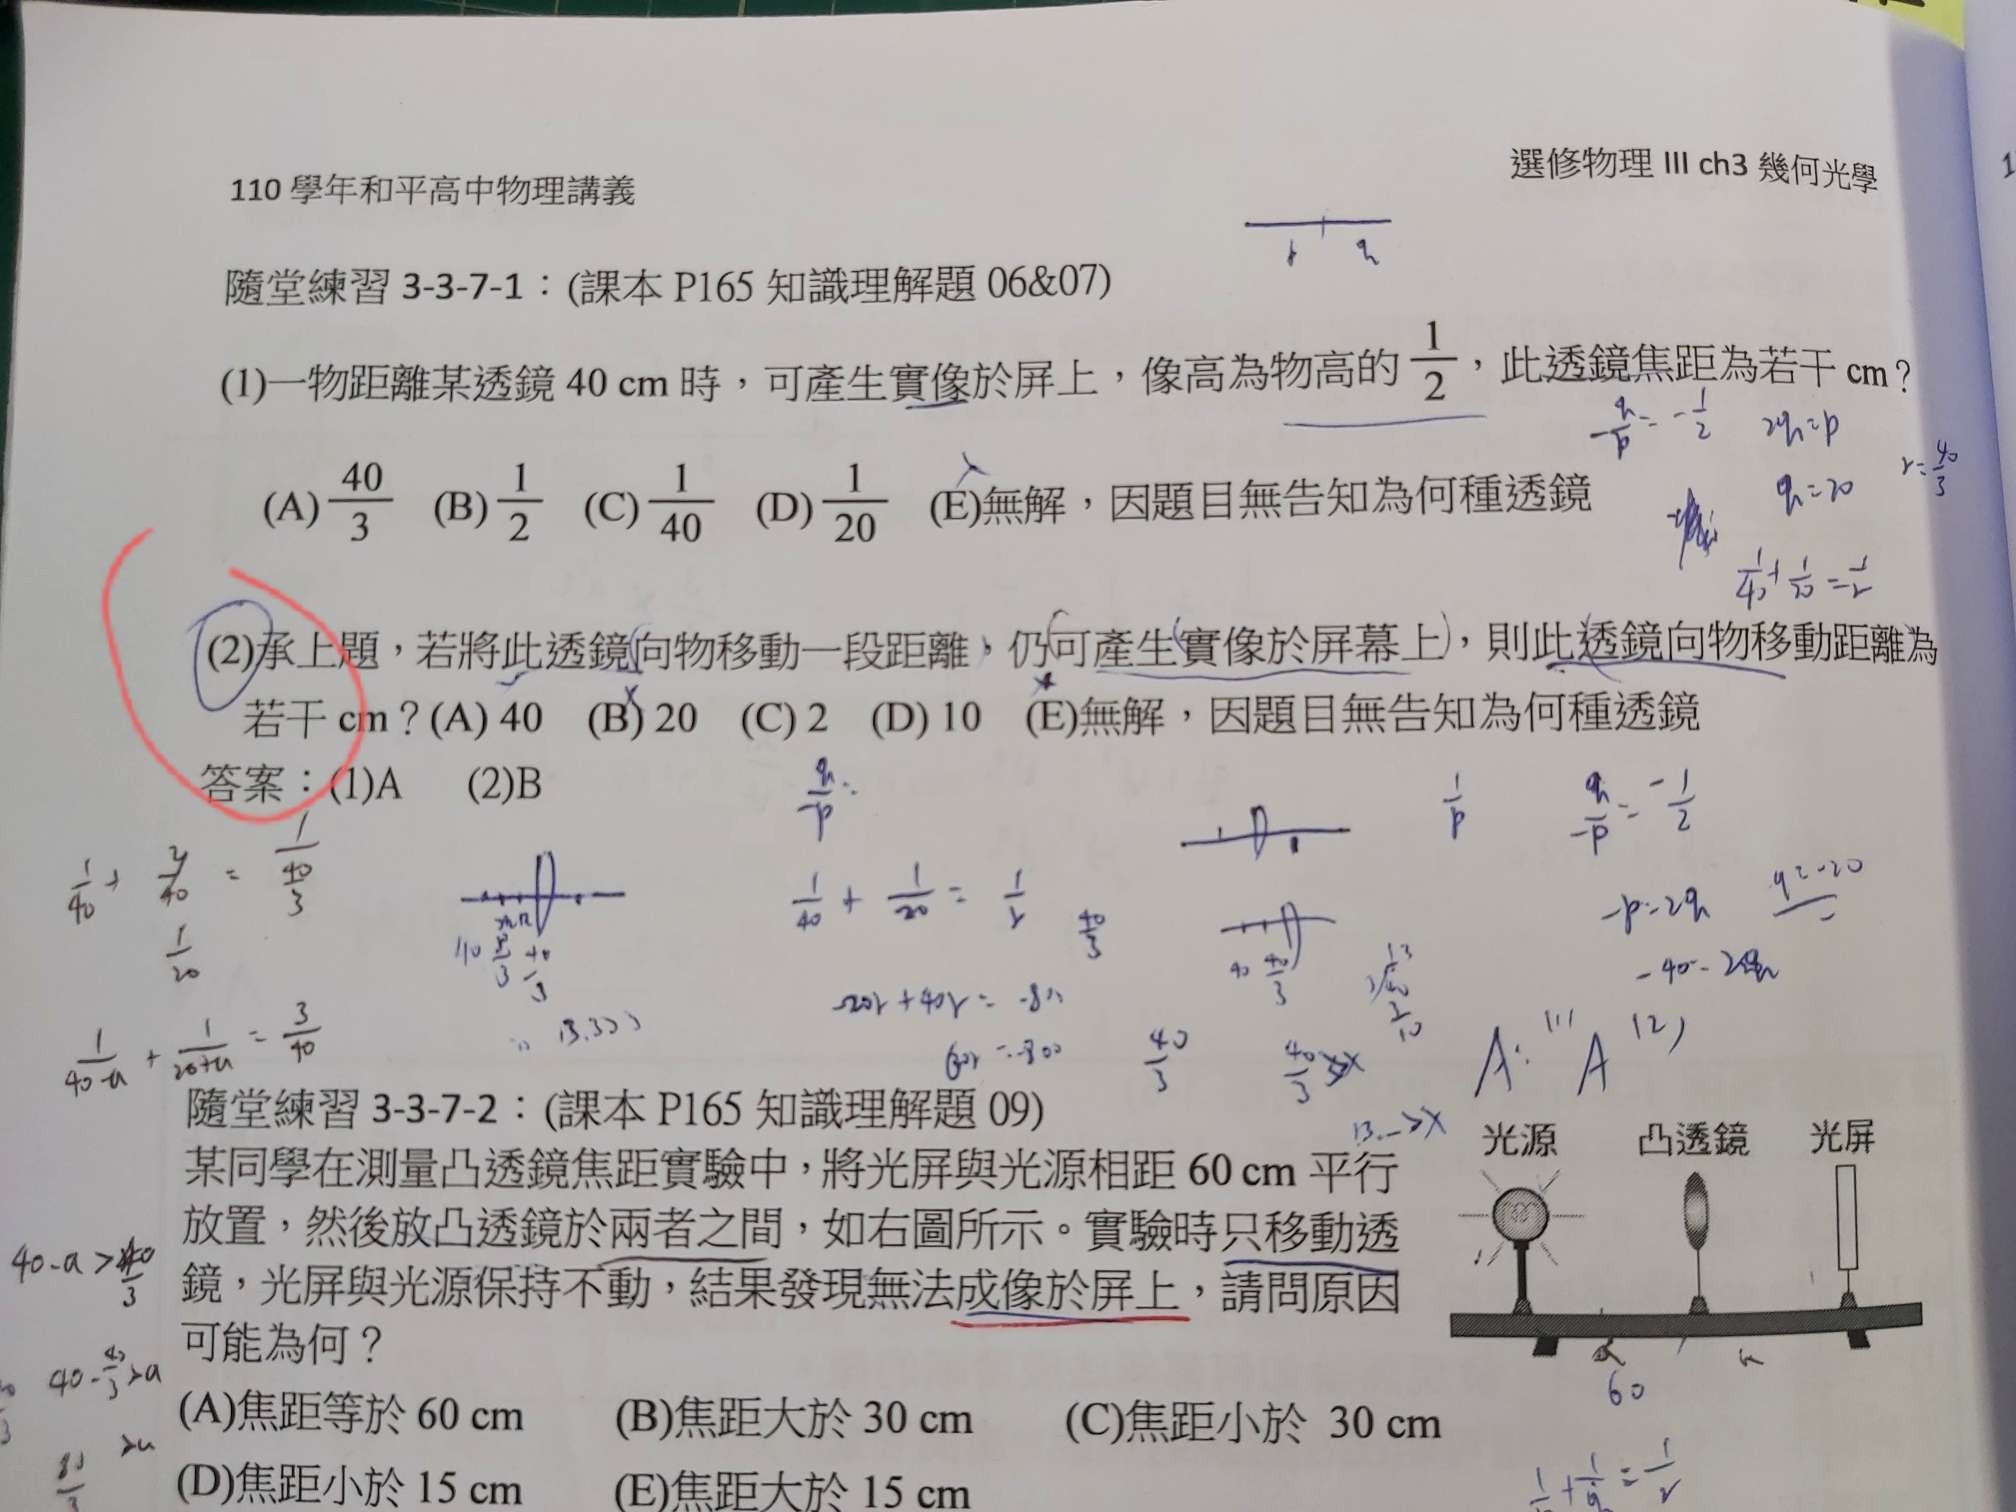 110 學年和平高中物理講義
選修物理 III ch3 幾何光學
p q
隨堂練習 3-3-7-1：(課本 P165 知識理解題 06&07)
(1)一物距離某透鏡 40 cm 時，可產生實像於屏上，像高為物高的 1/2，此透鏡焦距為若干 cm？
q/-p = -1/2 2q=p
q=20
1/40 + 1/20 = 1/r
(A) 40/3 (B) 1/2 (C) 1/40 (D) 1/20 (E)無解，因題目無告知為何種透鏡
(2)承上題，若將此透鏡向物移動一段距離，仍可產生實像於屏幕上，則此透鏡向物移動距離為
若干 cm？(A) 40 (B) 20 (C) 2 (D) 10 (E)無解，因題目無告知為何種透鏡
答案：(1)A (2)B
q/-p =
1/p
q/-p = -1/2
1/40 + 2/40 = 1/(40/3)
1/40 + 1/20 = 1/r
40/3
-p=2q q=-20
1/20
1/(40-a) + 1/(20+a) = 3/40
13.333
40/3
A: (1) A (2)
隨堂練習 3-3-7-2：(課本 P165 知識理解題 09)
光源 凸透鏡 光屏
某同學在測量凸透鏡焦距實驗中，將光屏與光源相距 60 cm 平行
放置，然後放凸透鏡於兩者之間，如右圖所示。實驗時只移動透
鏡，光屏與光源保持不動，結果發現無法成像於屏上，請問原因
可能為何？
40-a > 40/3
40 - 40/3 > a
60
(A)焦距等於 60 cm (B)焦距大於 30 cm (C)焦距小於 30 cm
(D)焦距小於 15 cm (E)焦距大於 15 cm